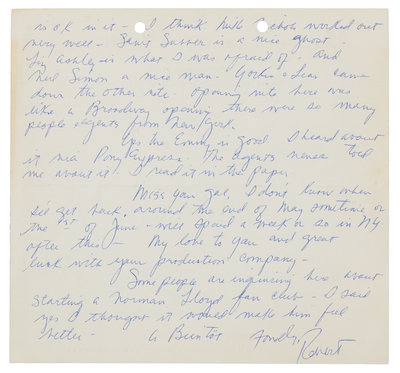 is o.k in it - I think Mike Nichols worked out
very well - is a nice ghost.
Liz Ashley is what I was afraid of. And
Neil Simon a nice man. came
down the other nite. Opening nite here was
like a Broadway opening there were so many
people & agents from New York.
Yes the Emmy is good I heard about
it via Pony Express. The agents never told
me about it. I read it in the paper.
Miss you gal, I don't know when
I'll get back, around the end of May sometime or
the 1st of June - will spend a week or so in N.Y.
after this - My love to you and great
luck with your production company -
Some people are inquiring here about
starting a Norman Lloyd fan club - I said
yes I thought it would make him feel
better - Fondly,
Robert